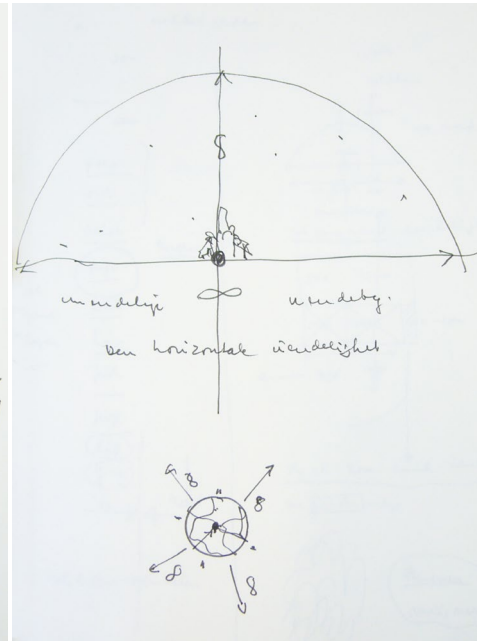 8
uendelig ∞ uendelig.
Den horizontale uendelighet
8
8
8
8